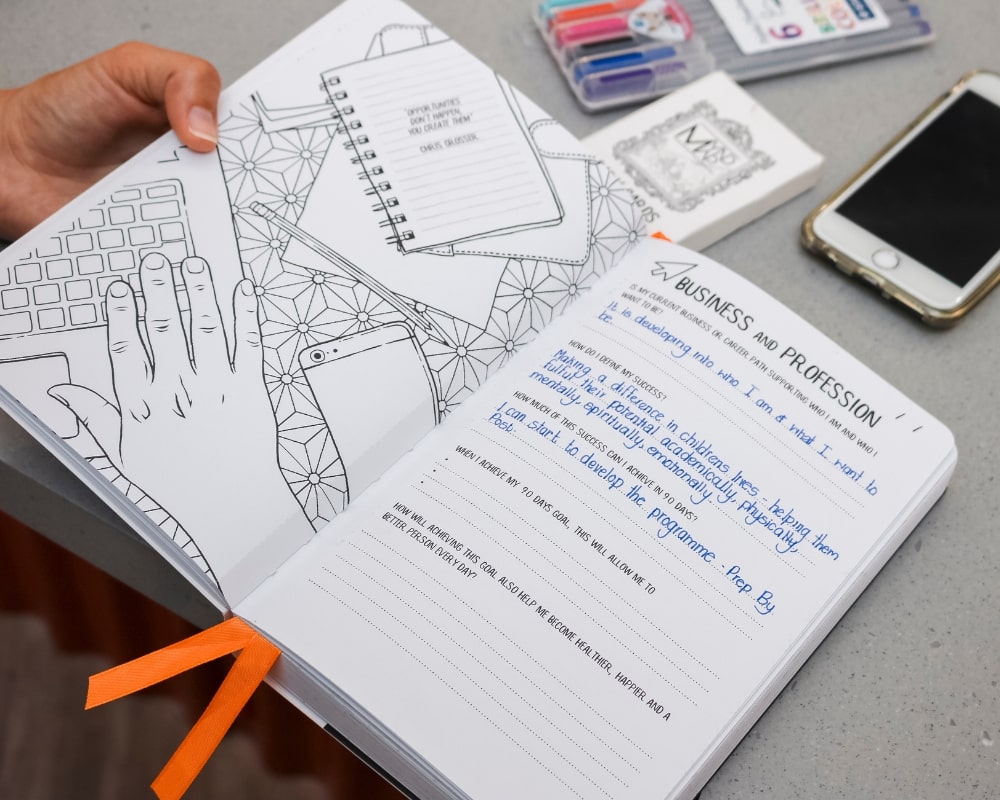 "OPPORTUNITIES
DON'T HAPPEN,
YOU CREATE THEM"
CHRIS GROSSER
BUSINESS AND PROFESSION
IS MY CURRENT BUSINESS OR CAREER PATH SUPPORTING WHO I AM AND WHO I
WANT TO BE?
It is developing into who I am & what I want to
be.
HOW DO I DEFINE MY SUCCESS?
Making a difference in childrens lives - helping them
fulful their potential academically, physically,
mentally, spiritually, emotionally.
HOW MUCH OF THIS SUCCESS CAN I ACHIEVE IN 90 DAYS?
I can start to develop the programme - Prep By
Post.
WHEN I ACHIEVE MY 90 DAYS GOAL, THIS WILL ALLOW ME TO
HOW WILL ACHIEVING THIS GOAL ALSO HELP ME BECOME HEALTHIER, HAPPIER AND A
BETTER PERSON EVERY DAY?